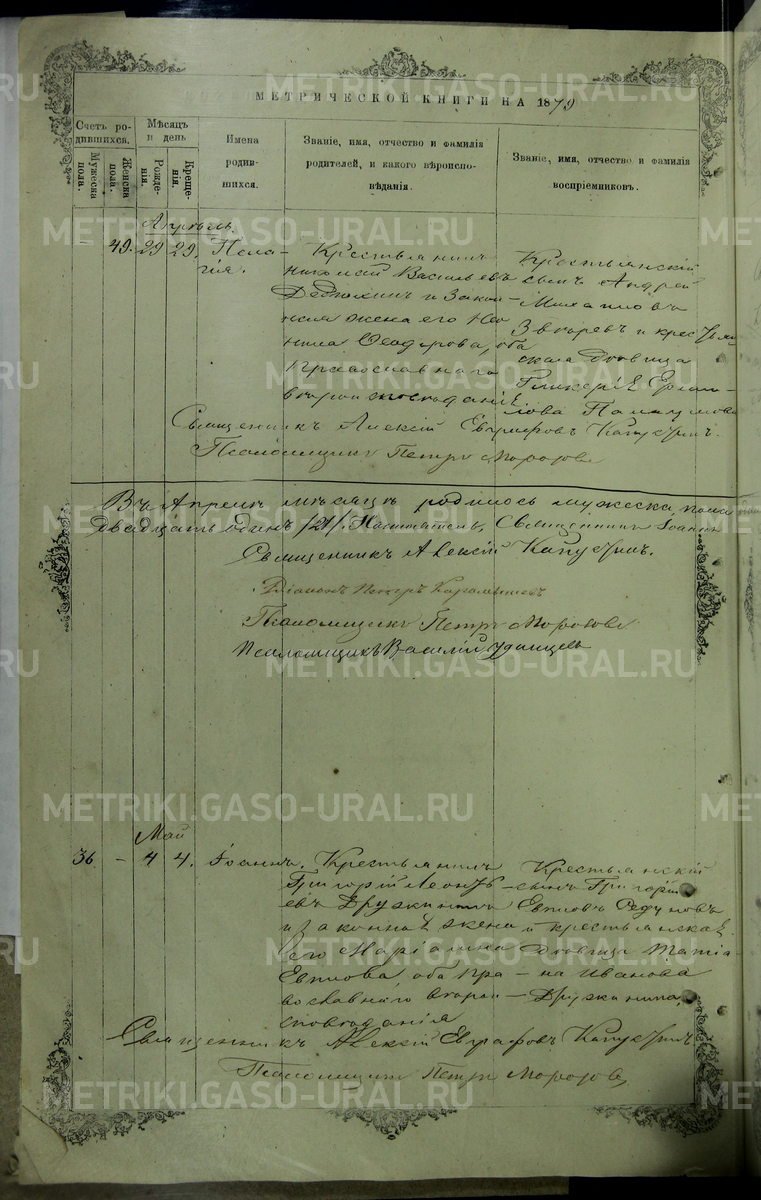 МЕТРИЧЕСКОЙ КНИГИ НА 1879
Счетъ ро-
дившихся.
Мужеска
пола.
Женска
пола.
Мѣсяцъ
и день
Рожде-
нія.
Креще-
нія.
Имена
родив-
шихся.
Званіе, имя, отчество и фамилія
родителей, и какого вѣроиспо-
вѣданія.
Званіе, имя, отчество и фамилія
воспріемниковъ.
Апрѣль
– 49. 29 29. Пела-
гія.
Крестьянинъ
Николай Васильевъ
и закон-
ная жена его
Ѳеодорова, оба
Православнаго
Крестьянскій
сынъ Андрей
Михайловъ
и крестьян
ская дѣвица
Гликерія
Священникъ Алексій Евграфовъ Капустинъ.
Псаломщикъ Петръ Морозовъ
Въ Апрелѣ мѣсяцѣ родилось мужеска пола
двадцать одинъ /21/. Настоятель, Священникъ Іоаннъ
Священникъ Алексій Капустинъ.
Діаконъ Петръ
Псаломщикъ Петръ Морозовъ
Псаломщикъ Василій Удинцевъ
Май
36 – 4 4. Іоаннъ.
Крестьянинъ
Григорій Леонть-
евъ Дружининъ
и законная жена
его Маріанна
Евплова, оба пра-
вославнаго
исповѣданія
Крестьянскій
сынъ Григорій
Евпловъ
и крестьянская
дѣвица Татія-
на Иванова
Дружинина,
Священникъ Алексій Евграфовъ Капустинъ.
Псаломщикъ Петръ Морозовъ
METRIKI.GASO-URAL.RU